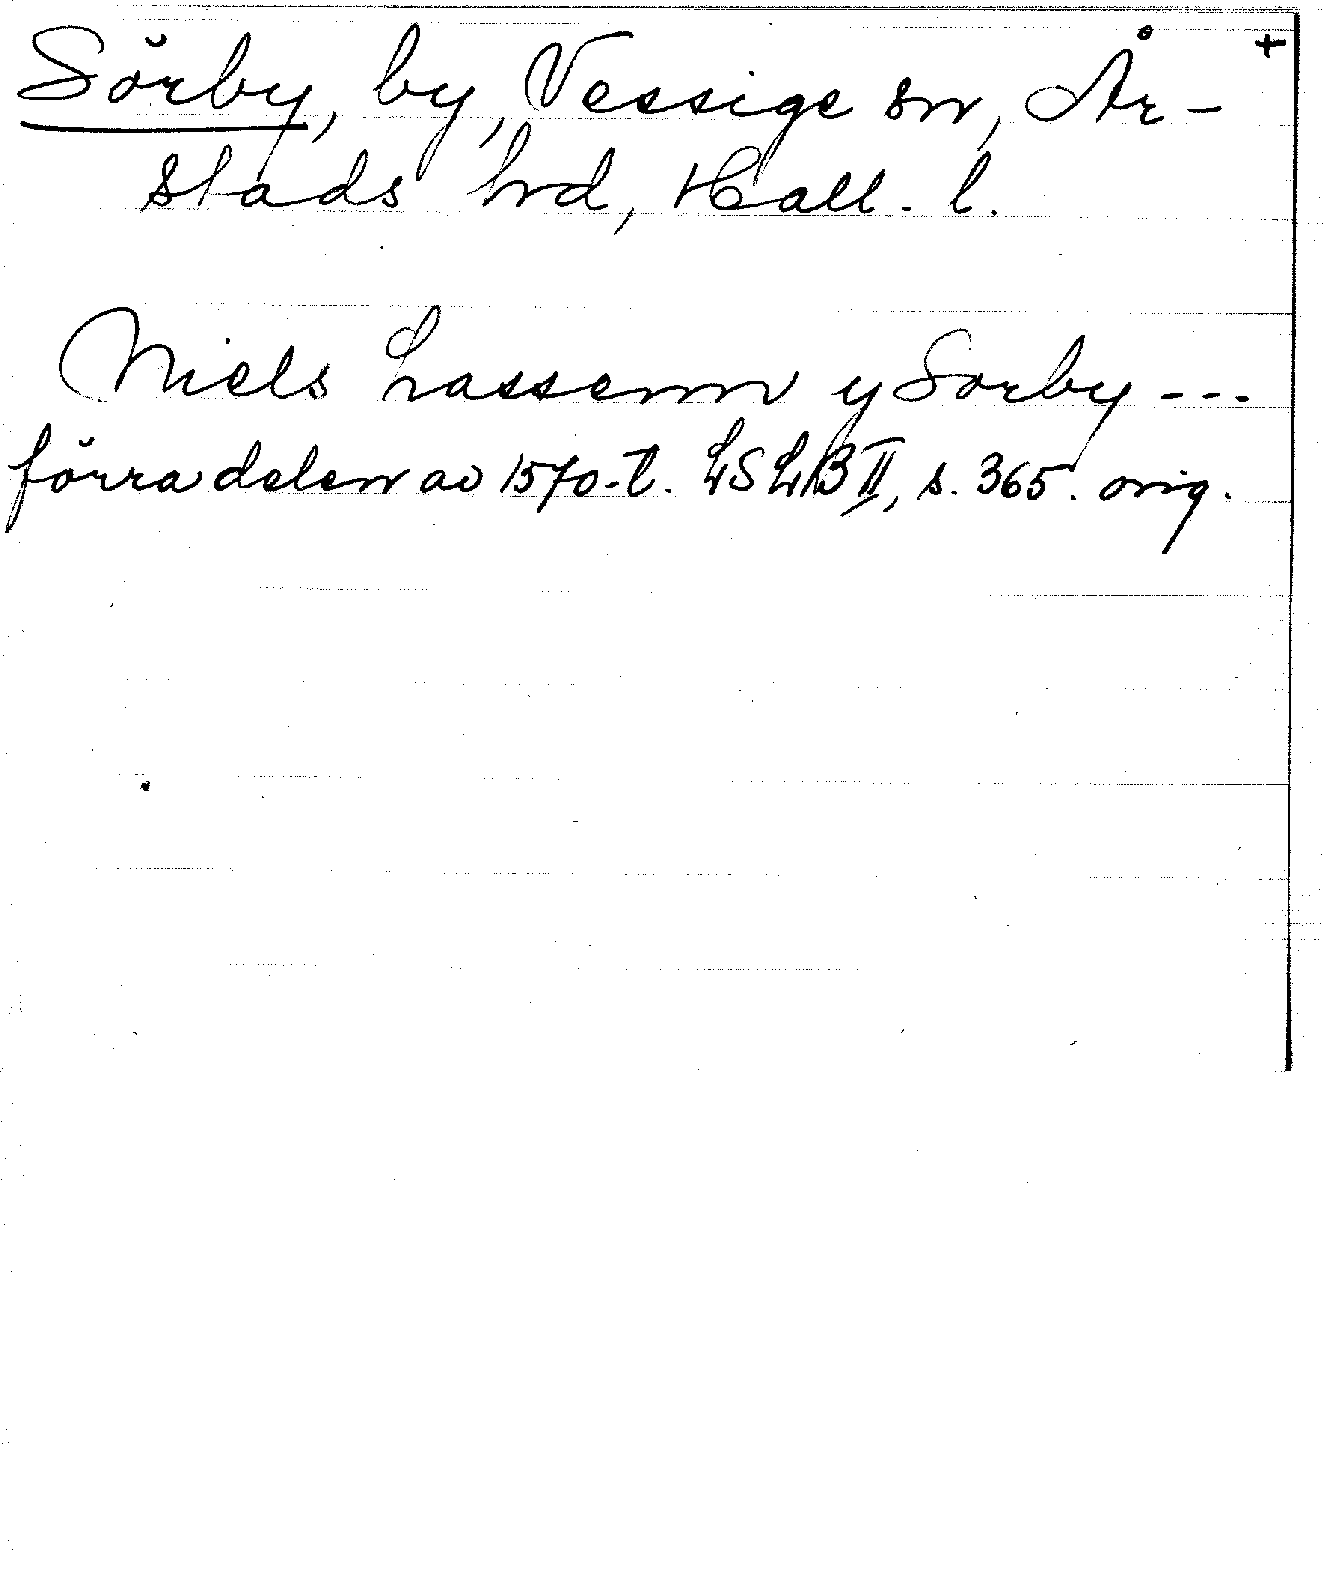 Sörby, by, Vessige sn, År- +
stads hrd, Hall. l.
Niels Lassenn y Sorby ---
förra delen av 1570-t. LSLB II, s. 365. orig.